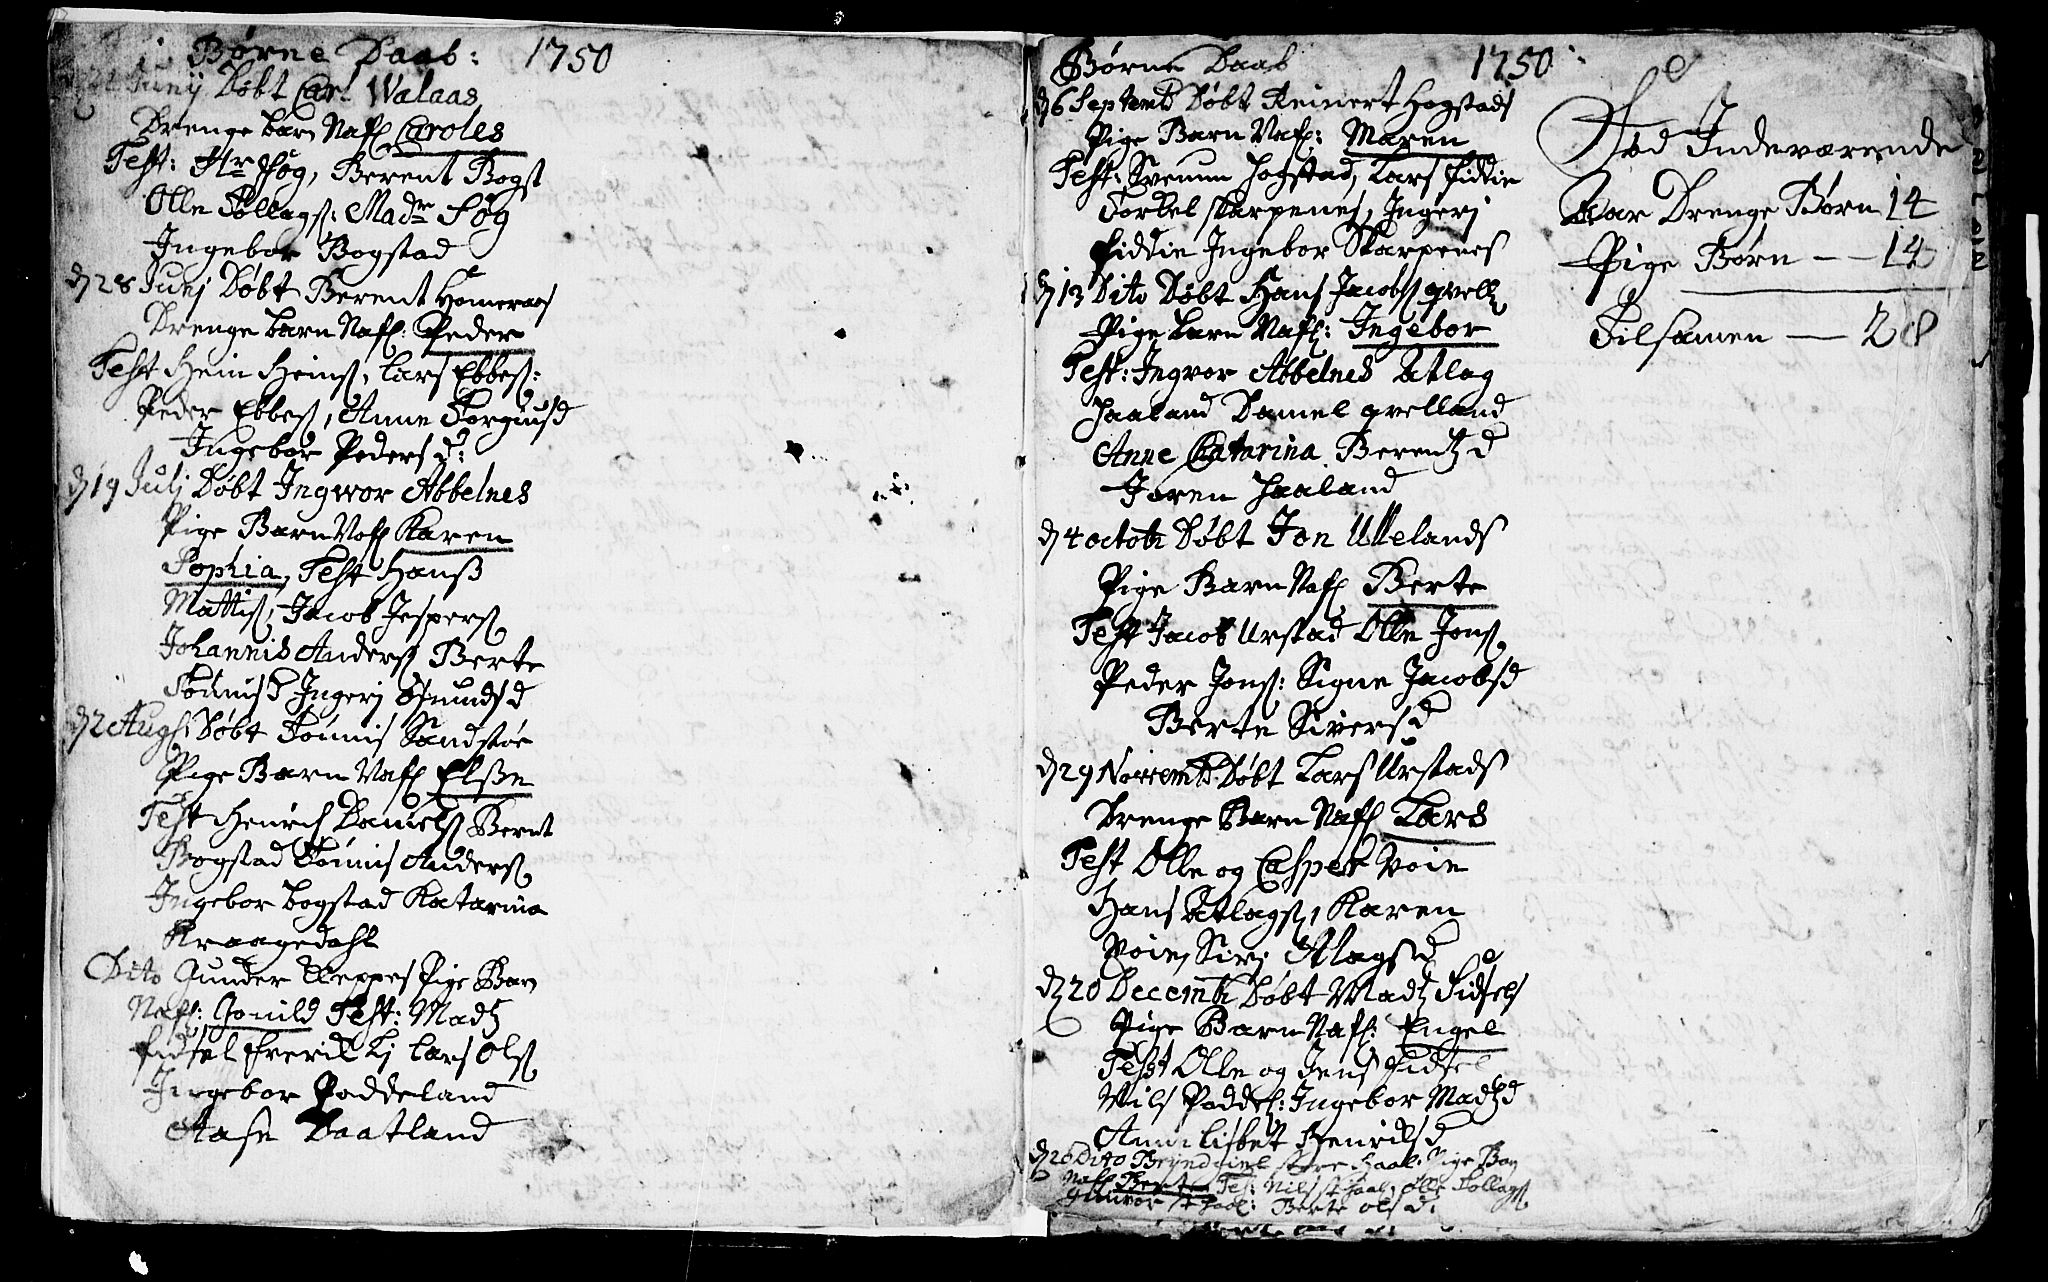 Børne Daab: 1750
d 21 Junij Døbt Carl Walaas
Drenge barn Nafl Caroles
Test: Hr Høg, Berent Bogst
Olle Tollags: Madr Høg
Ingebor Bogstad
d 28 Junj Døbt Berent Homeraas
Drenge barn Nafl: Peder
Test Hein Heins, Lars Ebbes:
Peder Ebbes, Anne Torgiusd
Ingebor Pedersd:
d 19 Julj Døbt Ingwor Abbelnes
Pige Barn Nafl Karen
Sophia, Test Hanß
Mattis, Jacob Jespers
Johannis Anders Berte
Tönnisd Ingerj Osmundsd
d 2 Augs: Døbt Tönnis Sandstøe
Pige Barn Nafl Elßne
Test Henrich Daniels Bernt
Bogstad Tönnis Anders
Ingebor bogstad Katarina
Kraagedahl
Dito Gunder Kleppes Pige Barn
Nafl: Gonild Test: Madtz
Fidsel Frerik Lj Lars Ols
Ingebor Poddeland
Aase Daatland
Børne Daab 1750:
d 6 Septembr Døbt Reinert Hogstads
Pige Barn Nafl: Maren
Test: Svenum Hogstad, Lars Fiddie
Torkel Skarpenes, Ingerj
Fiddie Ingebor Skarpenes
d 13 Dito Døbt Hans Jacobs qvell
Pige barn Nafl: Ingebor
Test: Ingvor Abbelnes Atlag
Haaland Daniel qvelland
Anne Catarina Berentzd
Joren Haaland
d 4 octobr Døbt Jon Ullelands
Pige Barn Nafl Berte
Test Jacob Urstad Olle Jons
Peder Jons: Signe Jacobsd
Berte Siversd
d 29 Novembr Døbt Lars Urstads
Drenge Barn Nafl Lars
Test Olle og Casper Voie
Hans Atlags, Karen
Voie, Sirj Atlagsd
d 20 Decembr Døbt Madtz Fidsels
Pige Barn Nafl: Engel
Test Olle og Jens Fidsel
Nils Poddel: Ingebor Madtzd
Anne Lisbet Henriksd
d 26 Dito Brynd store Haal: Pige Barn
Nafl Berte Tes: Nils st haal, Olle Tollags
Gunvor st haal: Berte olsd:
Fød Indeværende
Aar Drenge Børn 14
Pige Børn — 14
Tilsamen — 28